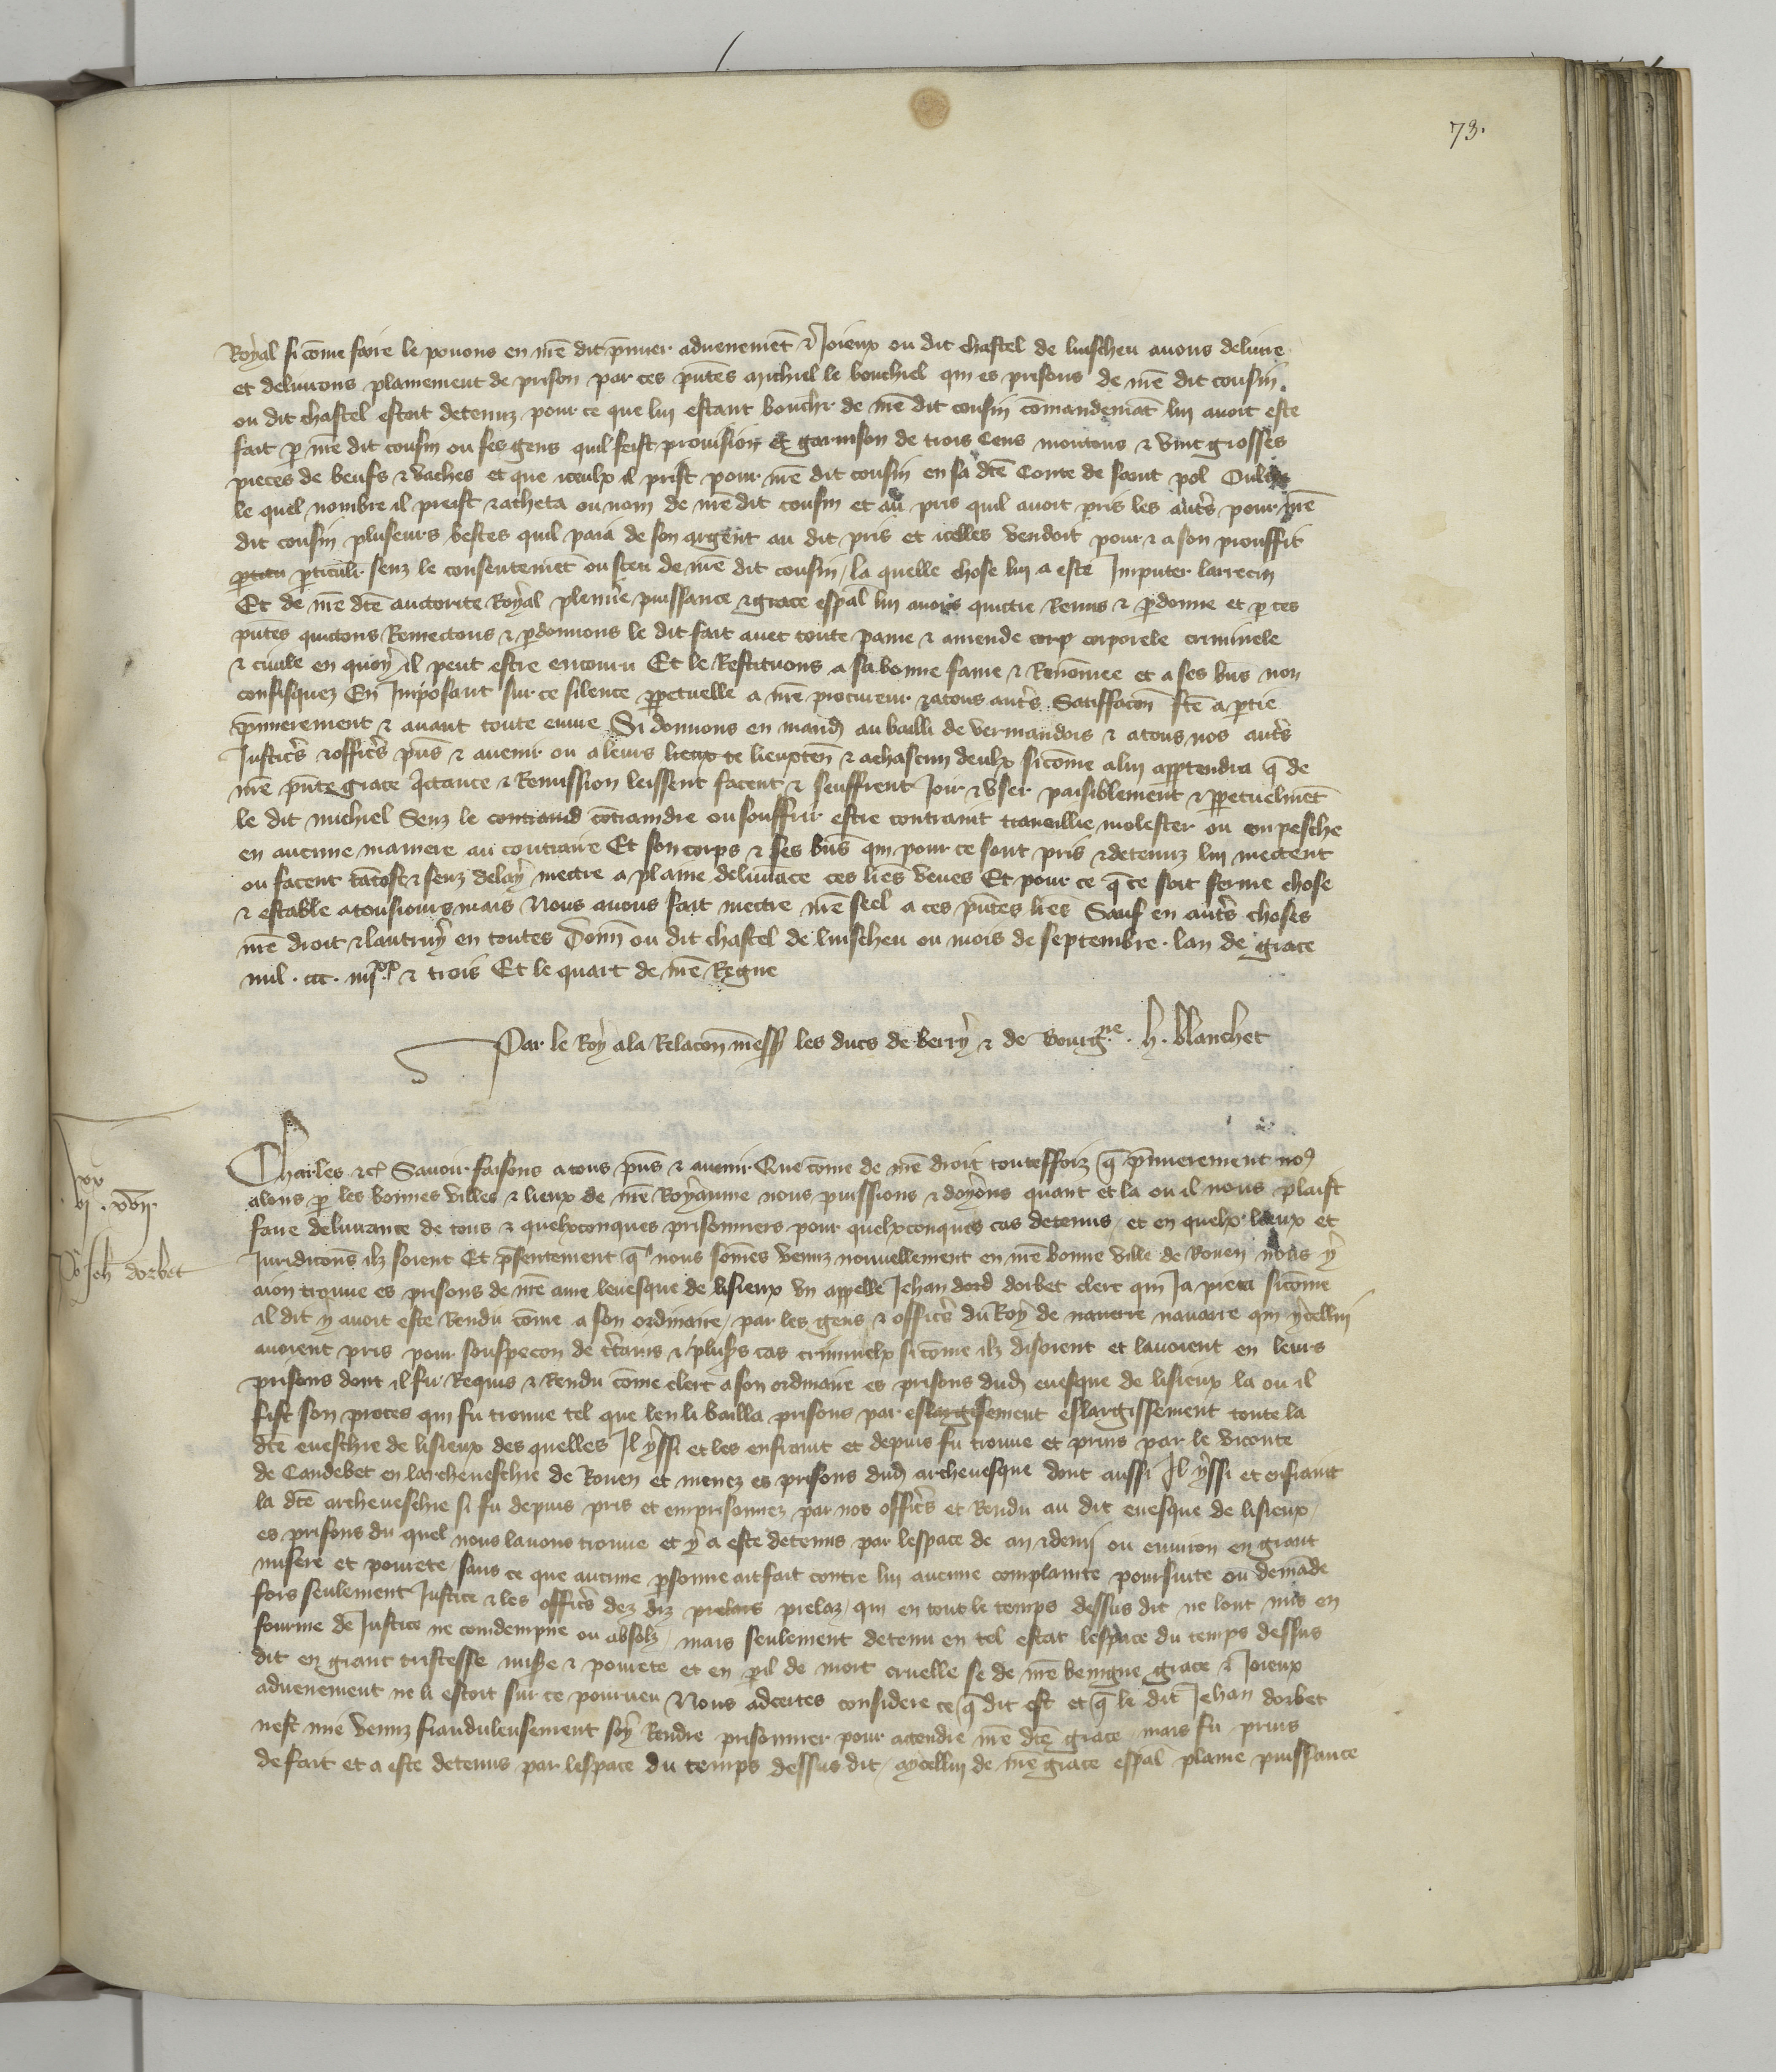 73.
Royal si cōme faire le povons en nr̄e dit p̄mier advenemēt & Joieux ou dit chastel de luischeu avons delivre
et delivrons plainement de prison par ces p̄ntes Michiel le bouchiel qui es prisons de nr̄e dit cousin
ou dit chastel estoit detenuz pour ce que lui estant bouchr de nr̄e dit cousin cōmandemāt lui avoit este
fait p nr̄e dit cousin ou ses gens quil feist provision & garnison de trois Cens moutons & vint grosses
pieces de beufs & vaches et que iceulx il prist pour nr̄e dit cousin en sa dc̄te Conte de saint pol Oultre
le quel nombre il preist & acheta ou nom de nr̄e dit cousin et au pris quil avoit pris les autr̄s pour nr̄e
dit cousin pluseurs bestes quil paia de son argent au dit pris et icelles vendoit pour & a son prouffit
pticu pticulr senz le consentemēt ou sceu de nr̄e dit cousin / la quelle chose lui a este Imputer larrecin
Et de nr̄e dc̄te auctorite Royal pleniere puissance & grace esp̄al lui avons quictie Remis & pdonne et p ces
p̄ntes quictons Remectons & pdonnons le dit fait avec toute paine & amende corp corporele criminele
& civile en quoy il peut estre encouru Et le Restituons a sa bonne fame & Renōmee et a ses biēs non
confisquez En Imposant sur ce silence ppetuelle a nr̄e procureur & a tous autr̄s Satiffacōn fc̄te a ptie
p̄mierement & avant toute euvre Si donnons en mand̄ au bailli de vermandois & a tous nos autr̄s
Justic̄rs & offic̄rs p̄ns & avenir ou a leurs lieux te lieuxten̄ & a chascun deulx si cōme a lui apptendra q̄ de
nr̄e p̄nte grace qictance & Remission leissent facent & seuffrent Joir & user paisiblement & ppetuelmēt
le dit michiel Senz le contraind cōtraindre ou souffrir estre contraint travcillie molester ou enpesche
en aucune maniere au contraire Et son corps & ses biēs qui pour ce sont pris & detenuz lui mectent
ou facent tātost & senz delay mectre a plaine delivrāce ces lr̄es veues Et pour ce q̄ ce soit ferme chose
& estable a tousiours mais Nous avons fait mectre nr̄e seel a ces p̄ntes lr̄es Sauf en autr̄s choses
nr̄e droit & lautruy en toutes Donn̄ ou dit chastel de luischeu ou mois de septembre . lan de grace
mil . ccc . iiij xx & trois Et le quart de nr̄e Regne
Par le Roy a la Relacōn mess̄ les ducs de berry & de bourg.ne . h . blanchet
xx
vj . xvij.
P Jeh̄ dorbet
Charles &c̄ Savoir faisons a tous p̄ns & avenir Que cōme de nr̄e droit toutesfoiz q̄ p̄mierement no9
alons p les bonnes villes & lieux de nr̄e Royaume nous puissions & doyons quant et la ou il nous plaist
faire delivrance de tous & quelxconques prisonniers pour quelxconques cas detenus / et en quelx lieux et
Juridicōns ilz soient Et p̄sentement q̄ nous sōmes venuz nouvellement en nr̄e bonne ville de Rouen nous y
aion trouve es prisons de nr̄e ame levesque de lisieux un appelle Jehan dord dorbet clerc qui Ja pieca si cōme
il dit y avoit este Rendu cōme a son ordinaire / par les gens & offic̄rs du Roy de naverre navarre qui ycellui
avoient pris pour souspecon de c̄tains & plus̄s cas criminelx si cōme ilz disoient et lavoient en leurs
prisons dont il fu Requis & Rendu cōme clerc a son ordinaire es prisons dud̄ evesque de lisieux la ou il
fist son proces qui fu trouve tel que len li bailla prisons par eslargisement eslargissement toute la
dc̄te eveschie de lisieux des quelles Il yssi et les enfraint et depuis fu trouve et prins par le viconte
de Caudebec en larcheveschie de Rouen et menez es prisons dud̄ archevesque dont aussi Il yssi et enfraint
la dc̄te archeveschie si fu depuis pris et emprisonnez par nos offic̄rs et Rendu au dit evesque de lisieux /
es prisons du quel nous lavons trouve et y a este detenus par lespace de an & demj ou environ en grant
misere et povrete / sans ce que aucune psonne ait fait contre lui aucune complainte poursuite ou demāde
fors seulement Justice & les offic̄rs dez diz prelas prelaz / qui en tout le temps dessus dit ne lont mis en
fourme de Justice ne condempne ou absolz / mais seulement detenu en tel estat lespace du temps dessus
dit en grant tristesse mis̄e & povrete et en pil de mort cruelle se de nr̄e benigne grace & Joieux
advenement ne li estoit sur ce pourveu Nous adcertes considere ce q̄ dit est et q̄ le dit Jehan dorbet
nest mie venuz frauduleusement soy Rendre prisonnier pour actendre nr̄e dc̄te grace / mais fu prins
de fait et a este detenus par lespace du temps dessus dit / aycellui de nr̄e grace esp̄al plaine puissance